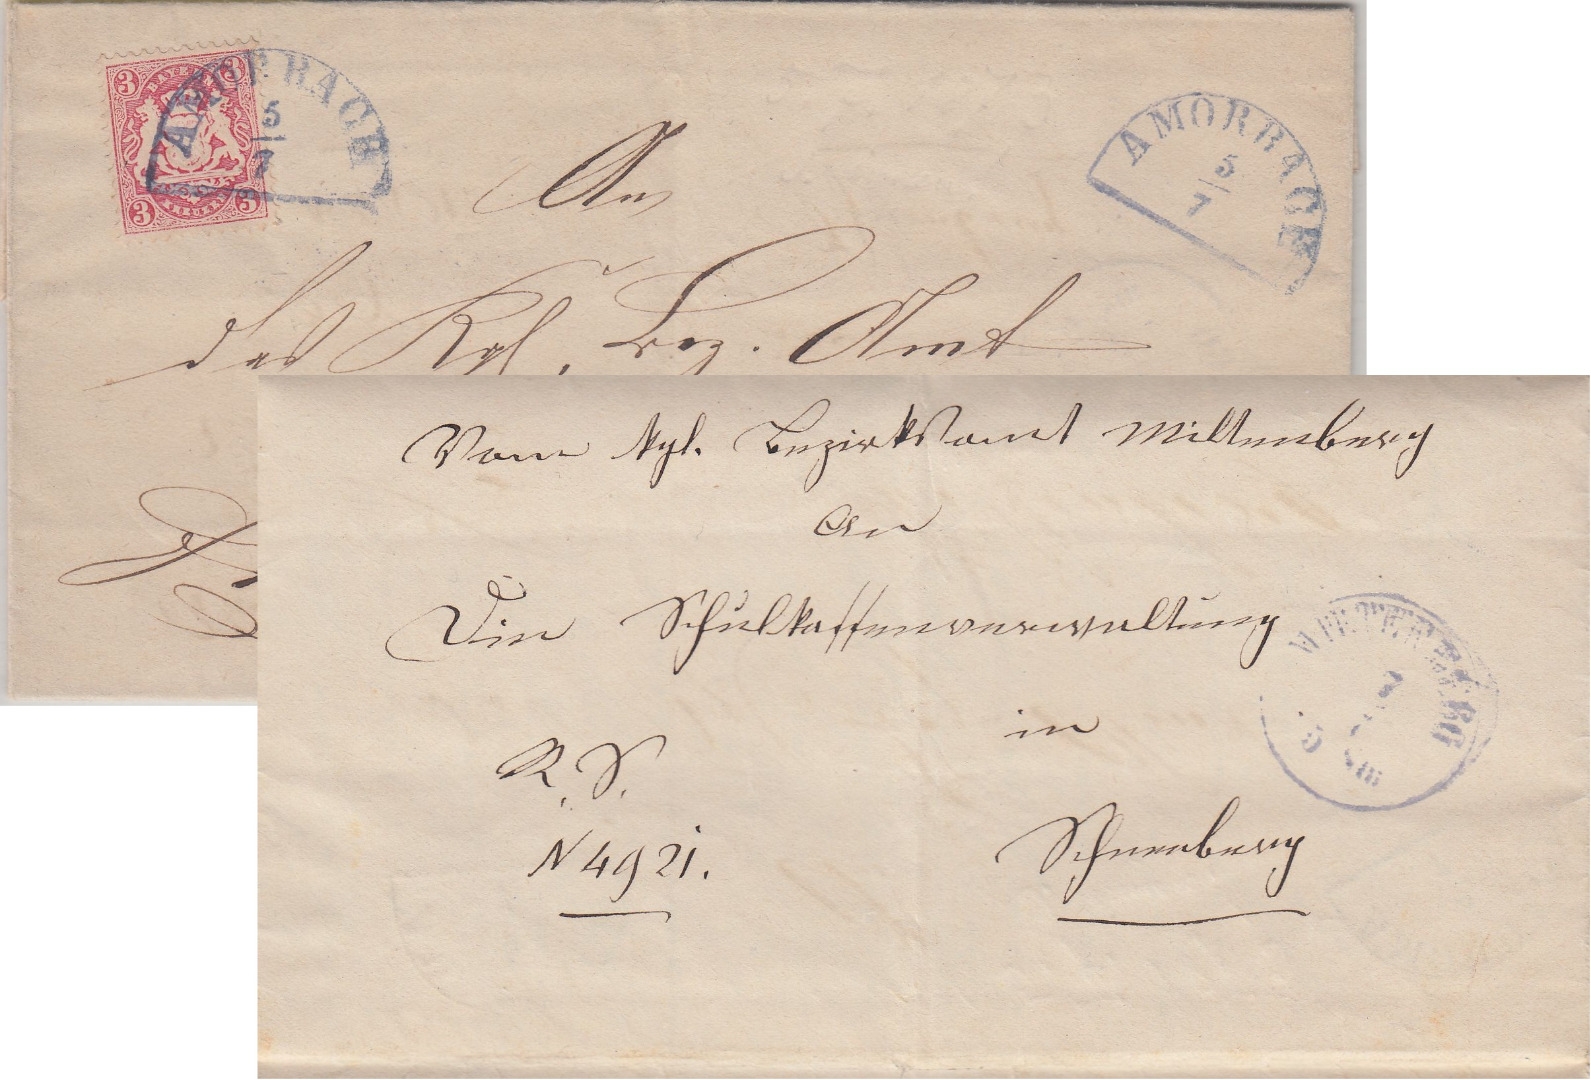 3 3
BAYERN
3 3
AMORBACH
5
7
AMORBACH
5
7
An
das Kgl. Bez. Amt
Vom kgl. Bezirksamt Miltenberg
An
Die Schulkassenverwaltung
in
R. S.
N 4921.
Schneeberg
MILTENBERG
7
5